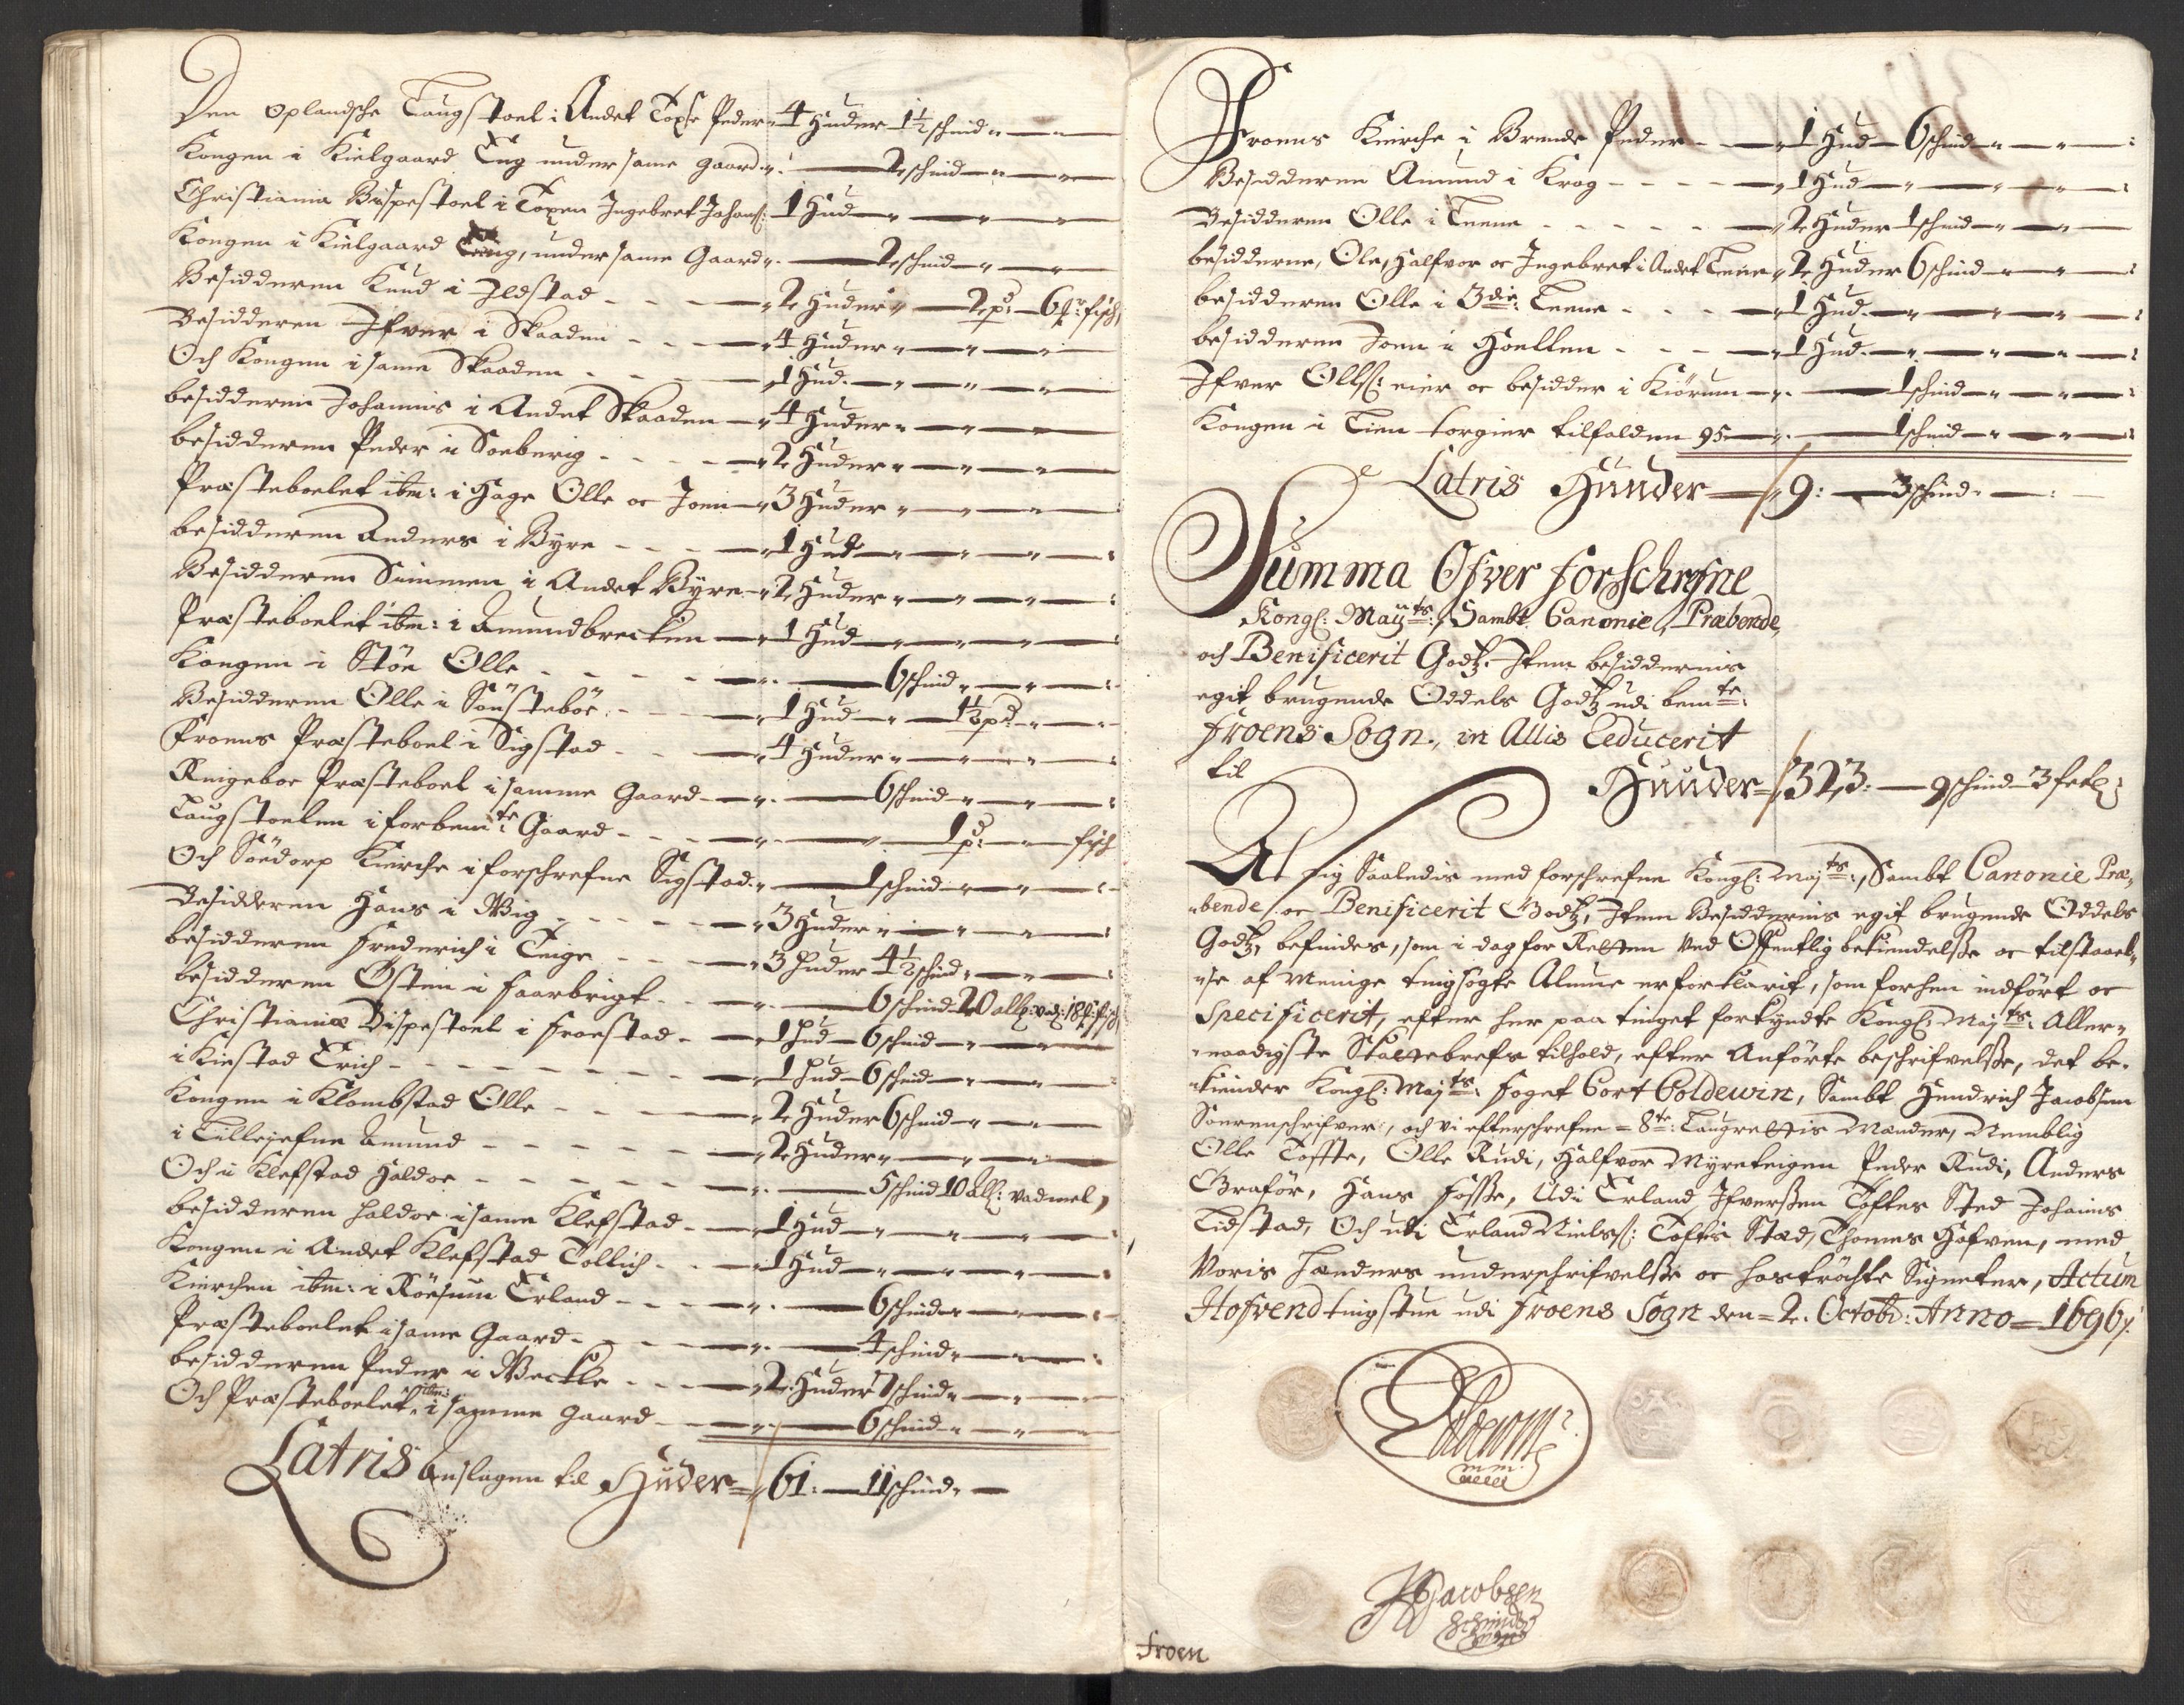 Den Oplandsche Laugstoel i Andet Toxse Peder 4 Huder 1½ schind
Kongen i Kielgaard Eng under same gaard 2 schind
Christiania Bispestoel i Toxen Ingebret Johans: 1 Hud
Kongen i Kielgaard Eng, under same Gaard 2 schind
Besidderen Knud i Ildstad 2 Huder 2 pd: 6 fisch
Besidderen Ifver i Skaaden 4 Huder
Och Kongen i same Skaaden 1 Hud
besidderen Johannis i Andet Skaaden 4 Huder
besidderen Peder i Soeberig 2 Huder
Præsteboelet ibm: i Hage Olle oc Joen 3 Huder
besidderen Anders i Byre 1 Hud
Besidderen Simmen i Andet Byre 2 Huder
Præsteboelet ibm: i Amundbrecken 1 Hud
Kongen i Stöe Olle 6 schind
Besidderen Olle i Sönsteböe 1 Hud 1½ pd
Froens Præsteboel i Sigstad 4 Huder
Ringeboe Præsteboel i samme Gaard 6 schind
Laugstoelen i forbemte Gaard 1 pd: fisch
Och Södorp Kierche i forschrefne Sigstad 1 schind
Besidderen Hans i Wig 3 Huder
besidderen Frederich i Teige 3 Huder 4½ schind
besidderen Östen i Faarbrigt 6 schind 20 all: vad: 18 fisch
Christiania Bispestoel i Froestad 1 Hud 6 schind
i Kiestad Erich 1 Hud 6 schind
Kongen i Klombstad Olle 2 Huder 6 schind
i Lillejefne Amund 2 Huder
Och i Klefstad Haldor 5 schind 10 All: vadmel
besidderen Haldor i same Klefstad 1 Hud
Kongen i Andet Klefstad Tollich 1 Hud
Kierchen ibm: i Röesum Erland 6 schind
Præsteboelet i same Gaard 4 schind
besidderen Peder i Weckle 2 Huder 7 schind
Och Præsteboelet ibm: i samme Gaard 6 schind
Latris Anslagen til Huder 61: 11 schind
Froens Kierche i Brende Peder 1 Hud 6 schind
Besidderen Amund i Krog 1 Hud
Besidderen Olle i Teene 2 Huder 1 schind
besidderne, Ole, Halfvor oc Ingebret i Andet Teene 2 Huder 6 schind
besidderen Olle i 3die: Teene 1 Hud
besidderen Joen i Hoellen 1 Hud
Ifver Olls: eier oc besidder i Kiörum 1 schind
Kongen i Tien torgier tilfalden 95 1 schind
Latris Hunder 9: 3 schind
Summa Ofver forschrefne
Kongl: Mayts:, Sambt Canonie, Præbende,
och Benificerit Godtz. Item besiddernis
egit brugende Oddels Godtz udi bemte:
Froens Sogn, in Allis Eeducerit
til Huuder 323: 9 schind 3 fetl:
At sig Saaledis med forschrefne Kongl: Majts:, Sambt Canonie Præ-
bende, oc Benificerit Godtz, Item Besiddernis egit brugende Oddels
Godtz, befindes, som i dag for Retten ved Offentlig bekiendelsße oc tilstaael-
se af Menige tingsögte Almue er forklarit, som forhen indfört oc
Specificerit, efter her paa tinget forkyndte Kongl: Majts: Aller-
naadigste Skattebrefs tilhold, efter Anförte beschrifvelsße, det be-
kiender Kongl: Majts: foget Cort Coldewin, Sambt Hendrich Jacobsen
Sorenschrifver, och vi efterschrefne 8te: Laugrettis Mænder, Nemblig
Olle Toffte, Olle Rudi, Halfvor Myreteigen Peder Rudi, Anders
Graför, Hans Fosße, Udi Erland Ifverßen Tofftes Sted Johanis
Lidstad, Och udi Erland Nielss: Toftis Stæd, Thomes Hofven, med
Voris hænders underschrifvelsße oc hoströchte Signeter, Actum
Hofvend tingstue udi Froens Sogn den 2. Octobr: Anno 1696
Coldewin
mppria
HJacobsen
Froen